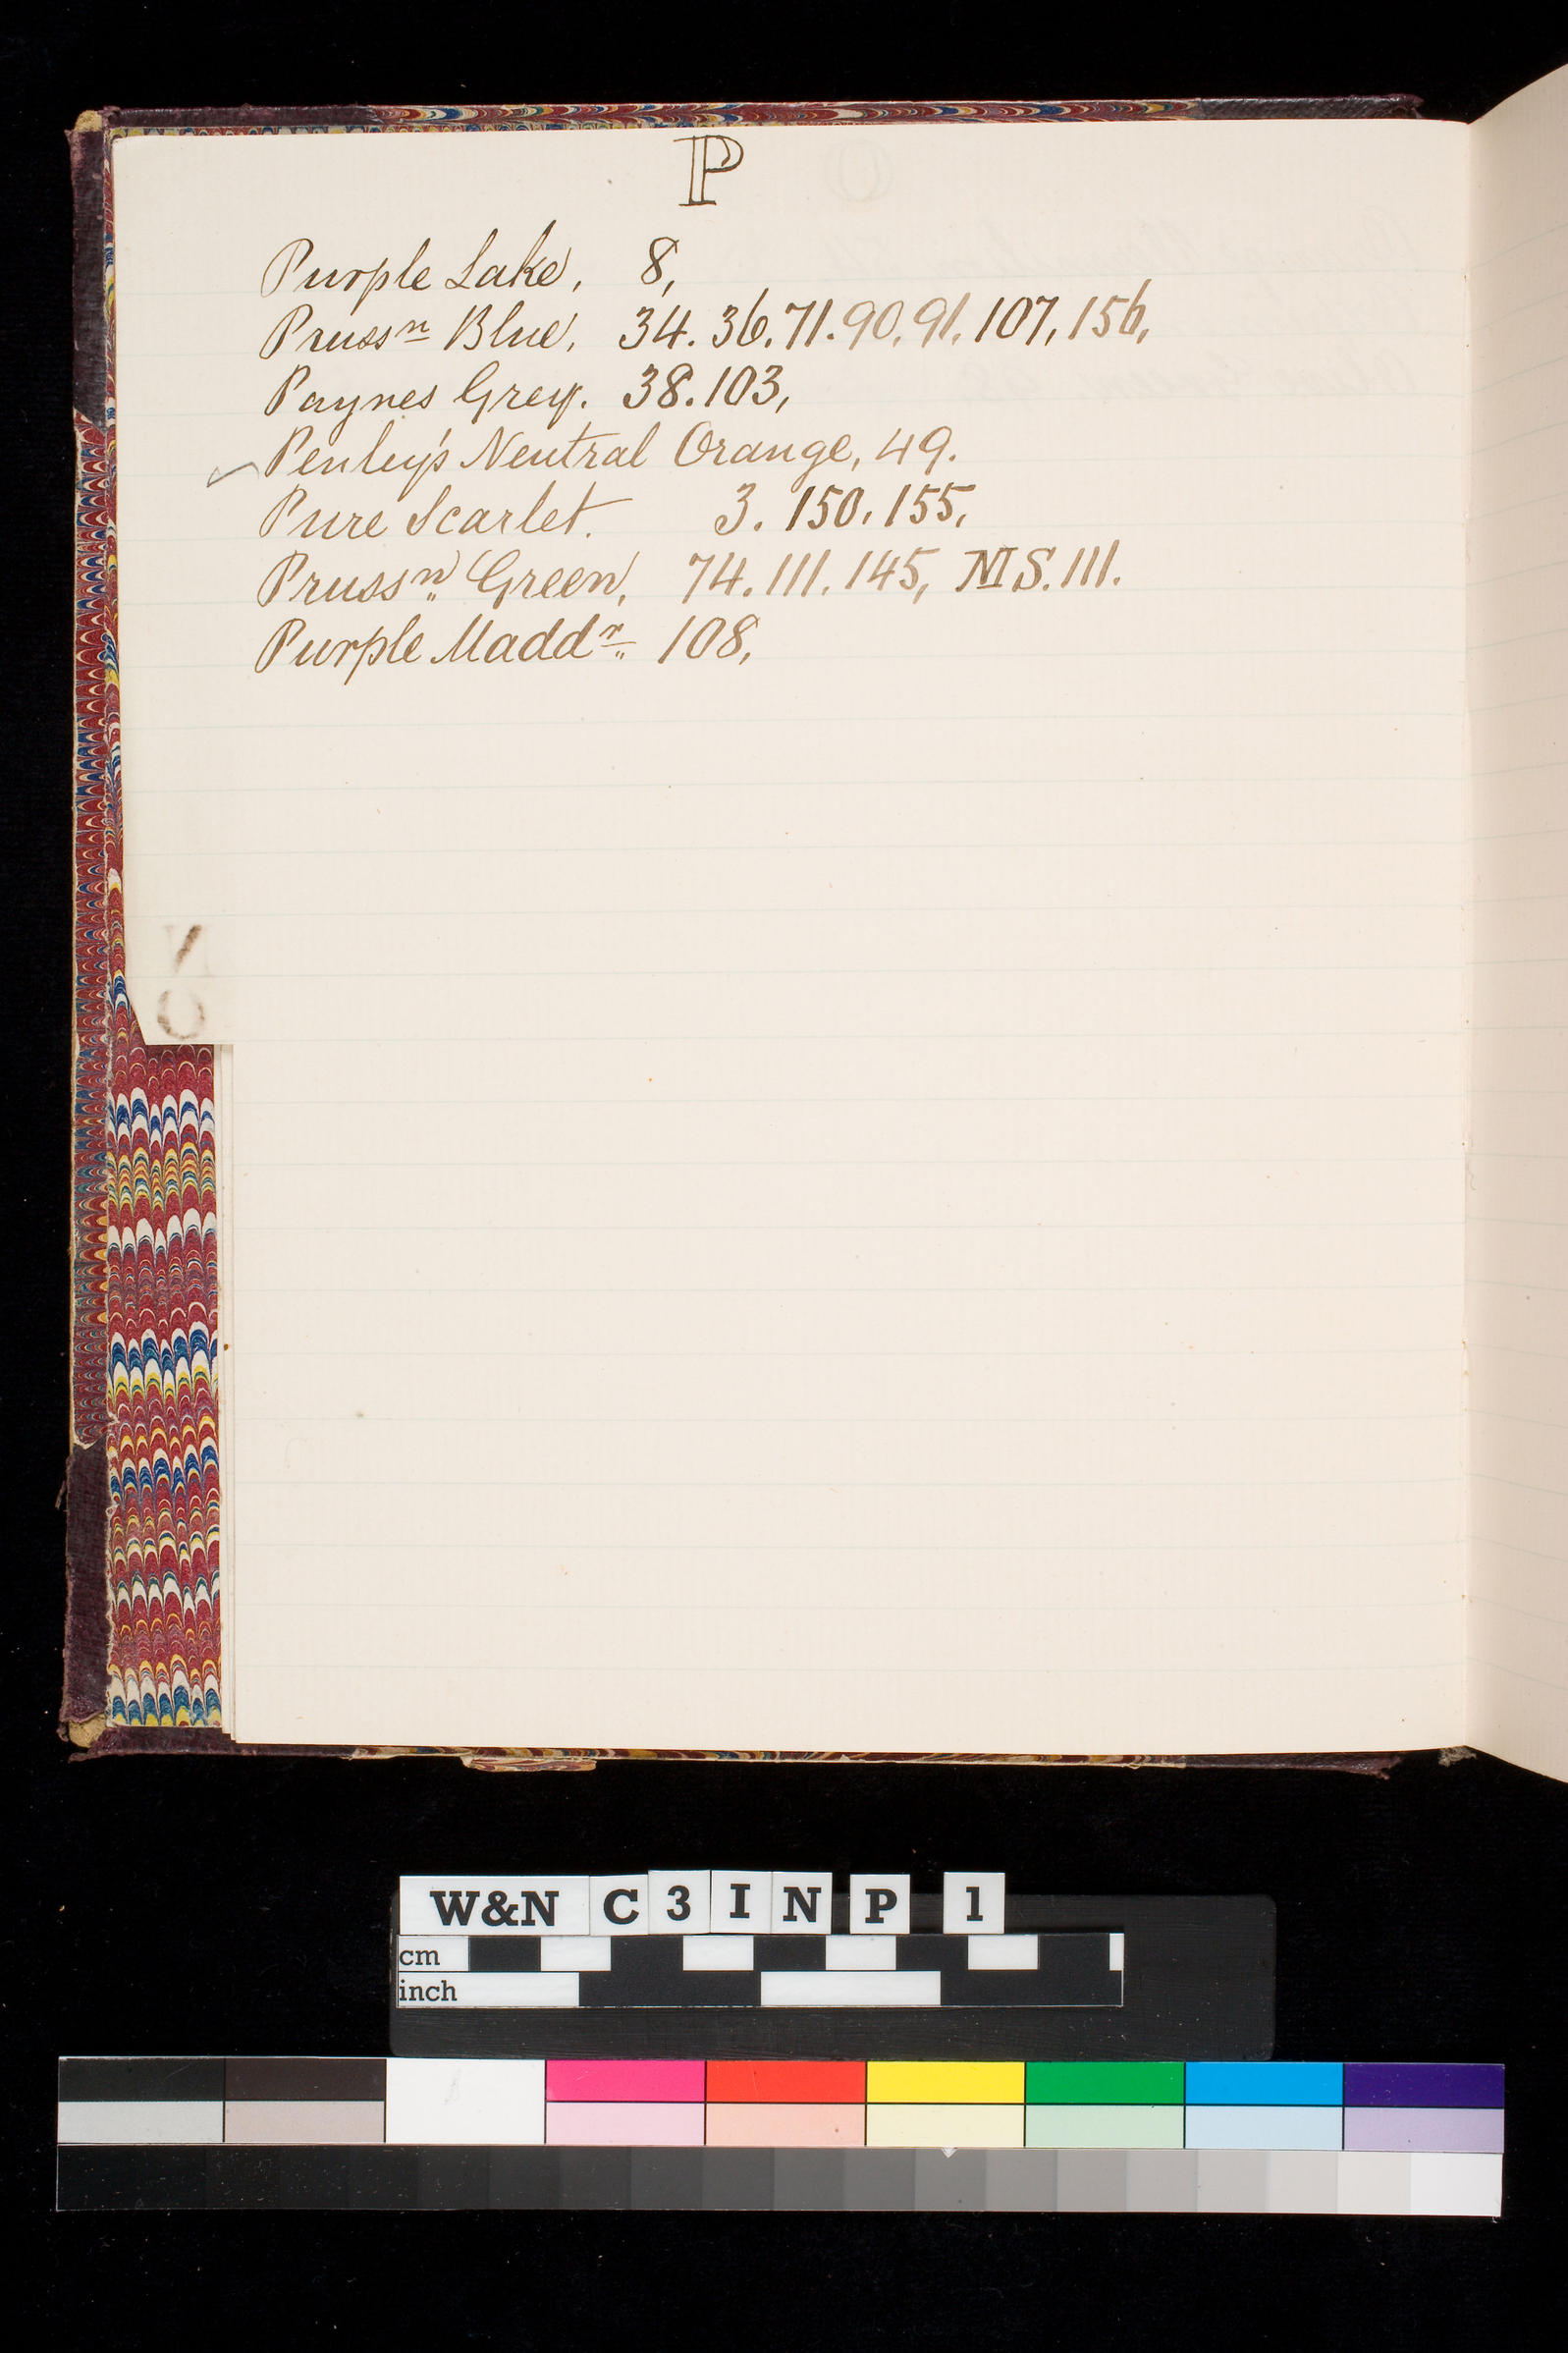 P
Purple Lake, 8,
Prussn Blue, 34. 36. 71. 90. 91. 107, 156,
Paynes Grey. 38. 103,
Penley's Neutral Orange, 49.
Pure Scarlet. 3. 150. 155,
Prussn Green, 74. 111. 145, MS. 111.
Purple Maddr 108,
W&N C 3 I N P 1
cm
inch